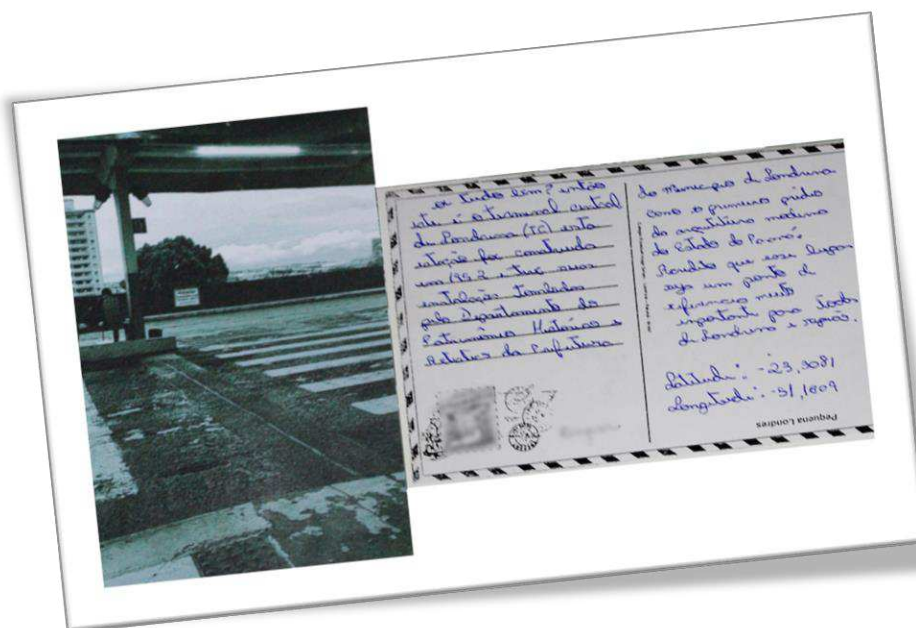 oi tudo bem? então
este é o terminal central
de Londrina (TC) esta
estação foi construída
em 1952 e teve suas
instalações tombadas
pelo Departamento do
Patrimônio Histórico e
Artístico da Prefeitura
do Município de Londrina
como o primeiro prédio
da arquitetura moderna
do Estado do Paraná.
Acredito que esse lugar
seja um ponto de
referência muito
importante para todos
de Londrina e região.
Latitude: -23,3081
Longitude: -51,1609
Pequena Londres